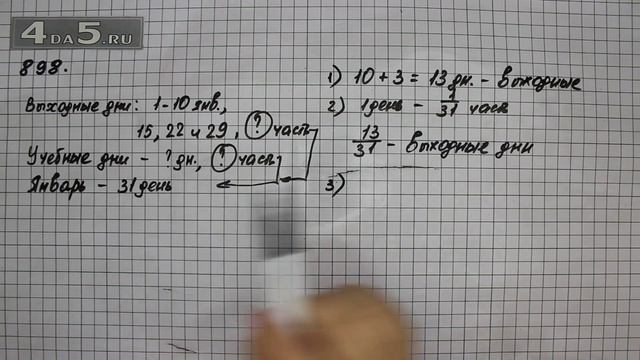 4DA5.RU
898.
Выходные дни: 1-10 янв.,
15, 22 и 29, ? часть
Учебные дни - ? дн., ? часть
Январь - 31 день
1) 10 + 3 = 13 дн. - выходные
2) 1 день - 1/31 часть
13/31 - выходные дни
3)